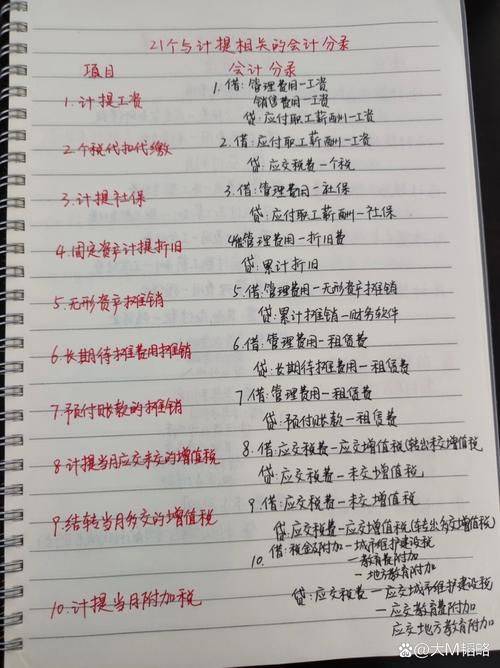 21个与计提相关的会计分录
项目 会计分录
1.计提工资
1.借:管理费用—工资
销售费用—工资
贷:应付职工薪酬—工资
2.个税代扣代缴
2.借:应付职工薪酬—工资
贷:应交税费—个税
3.计提社保
3.借:管理费用—社保
贷:应付职工薪酬—社保
4.固定资产计提折旧
4.借管理费用—折旧费
贷:累计折旧
5.无形资产摊销
5.借:管理费用—无形资产摊销
贷:累计摊销—财务软件
6.长期待摊费用摊销
6.借:管理费用—租赁费
贷:长期待摊费用—租赁费
7.预付账款的摊销
7借:管理费用—租赁费
贷:预付账款—租赁费
8计提当月应交未交的增值税
8.借:应交税费—应交增值税(转出未交增值税
贷:应交税费—未交增值税
9.结转当月多交的增值税
9.借:应交税费—未交增值税
贷:应交税费—应交增值税(转出多交增值税)
10.计提当月附加税
10.借:税金及附加—城市维护建设税
—教育费附加
—地方教育附加
贷:应交税费—应交城市维护建设税
—应交教育费附加
应交地方教育附加
大M韬略